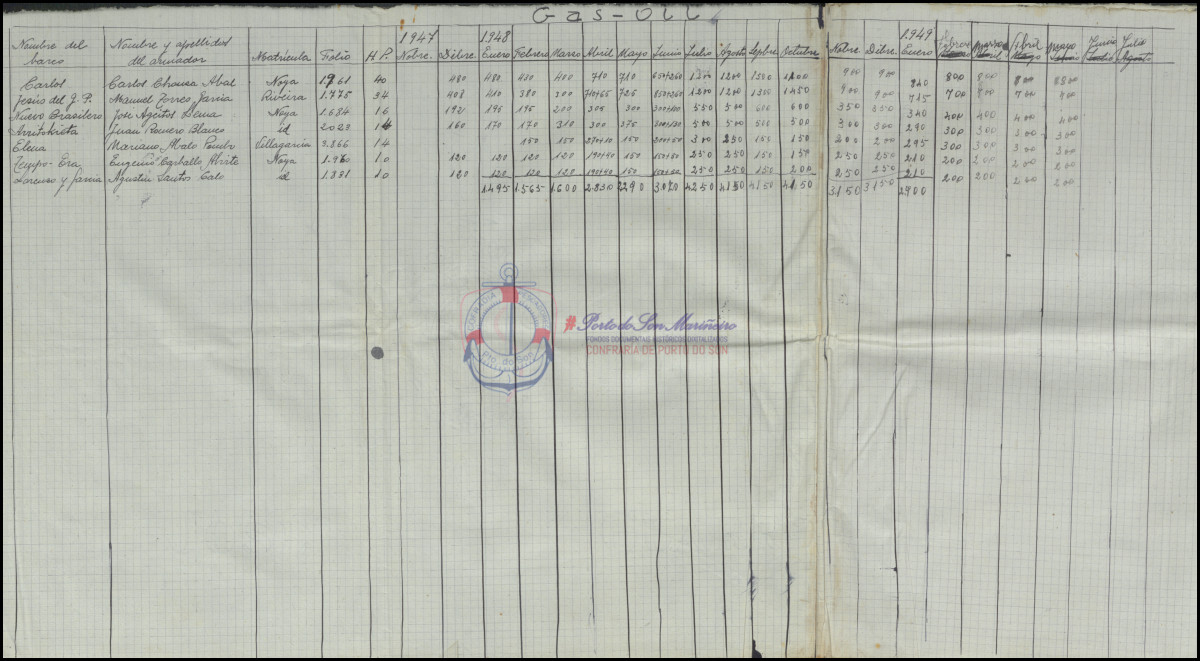 Gas-Oil
1947 1948 1949
Nombre del barco Nombre y apellidos del armador Matrícula Folio H.P. Nobre. Dibre. Enero Febrero Marzo Abril Mayo Junio Julio Agosto Sepbre. Octubre Nobre. Dibre. Enero Marzo Abril Mayo Junio Julio Agosto
Carlos Carlos Chouza Abal Noya 1961 40 480 480 430 400 710 710 1300 1200 1300 1100 900 900 840 800 800 800 800
Jesús del G.P. Manuel Torres García Riveira 1.775 34 408 410 380 300 710+65 725 850+260 1200 1200 1300 1450 900 900 715 700 800 700 700
Nuevo Brasilero José Ageitos Lema Noya 1.684 16 192 195 195 200 305 300 300+100 550 500 600 600 350 350 340 400 400 400 400
Juan Romero Blanco id 2023 14 160 170 170 310 300 275 500 500 500 500 300 300 290 300 300 300 300
Elena Mariano Abalo Villagarcía 3.866 14 150 150 270+10 150 300+50 300 250 150 150 200 200 295 300 300 300 300
Tempo-Era Eugenio Carballo Noya 1.980 10 120 120 120 120 190+50 150 150+50 250 250 150 150 250 250 210 200 200 200 200
Lorenzo y García Agustín Santos id 1.881 10 120 120 120 120 190+50 150 150+50 250 250 150 200 250 250 210 200 200 200 200
1495 1.565 1.600 2.830 2290 3.070 4250 4150 4150 4150 3150 3150 2900
COFRADIA PESCADORES
Pto. do Son
#Porto do Son Mariñeiro
FONDOS DOCUMENTAIS HISTÓRICOS DIXITALIZADOS
CONFRARÍA DE PORTO DO SON